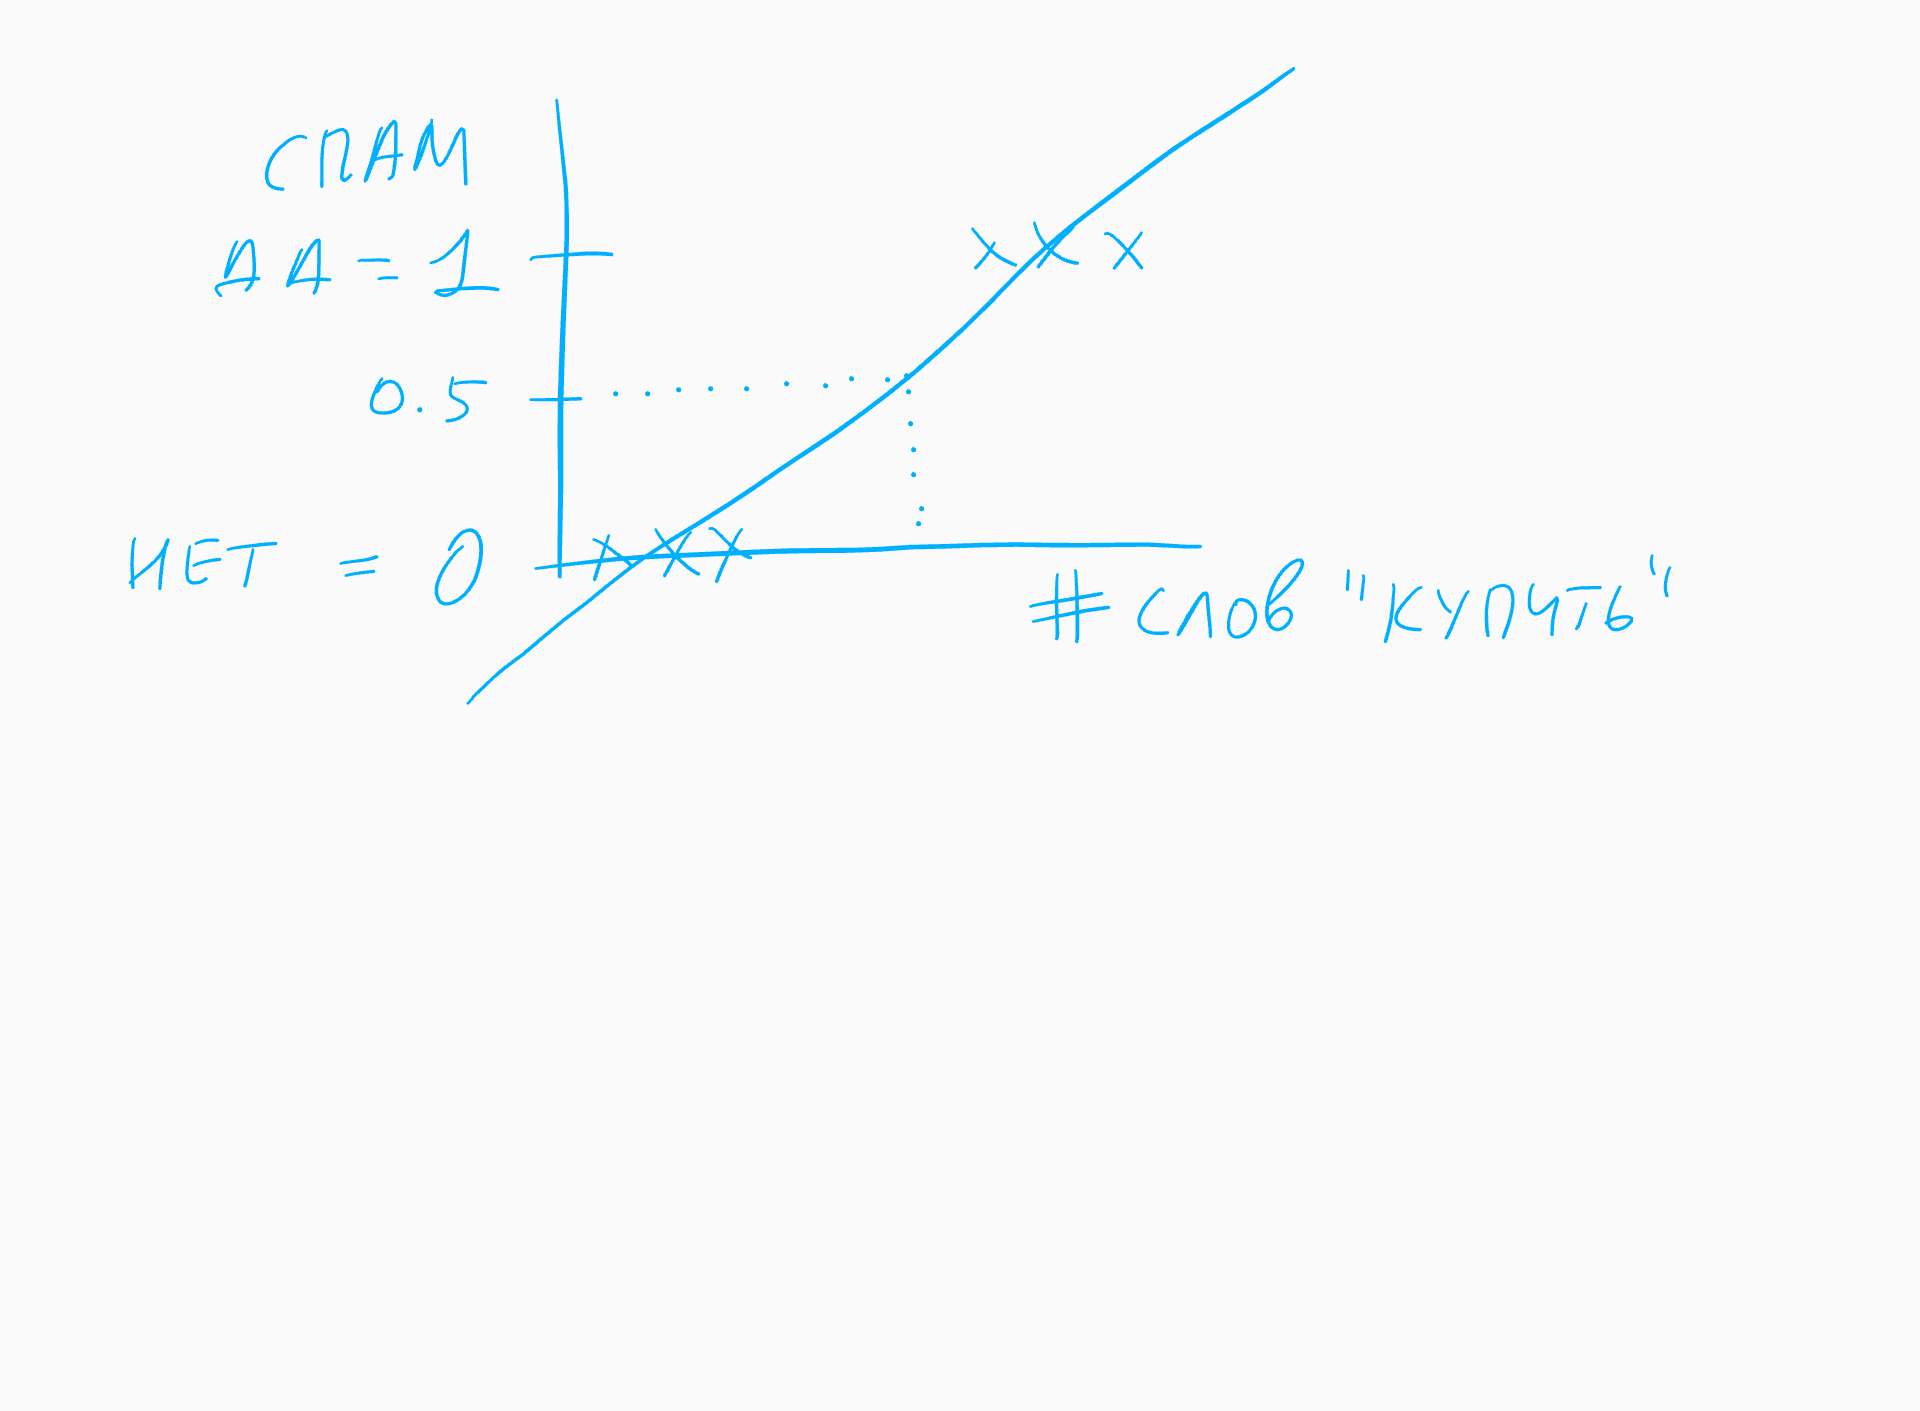 СПАМ
ДА = 1
0.5
НЕТ = 0
# слов "КУПИТЬ"